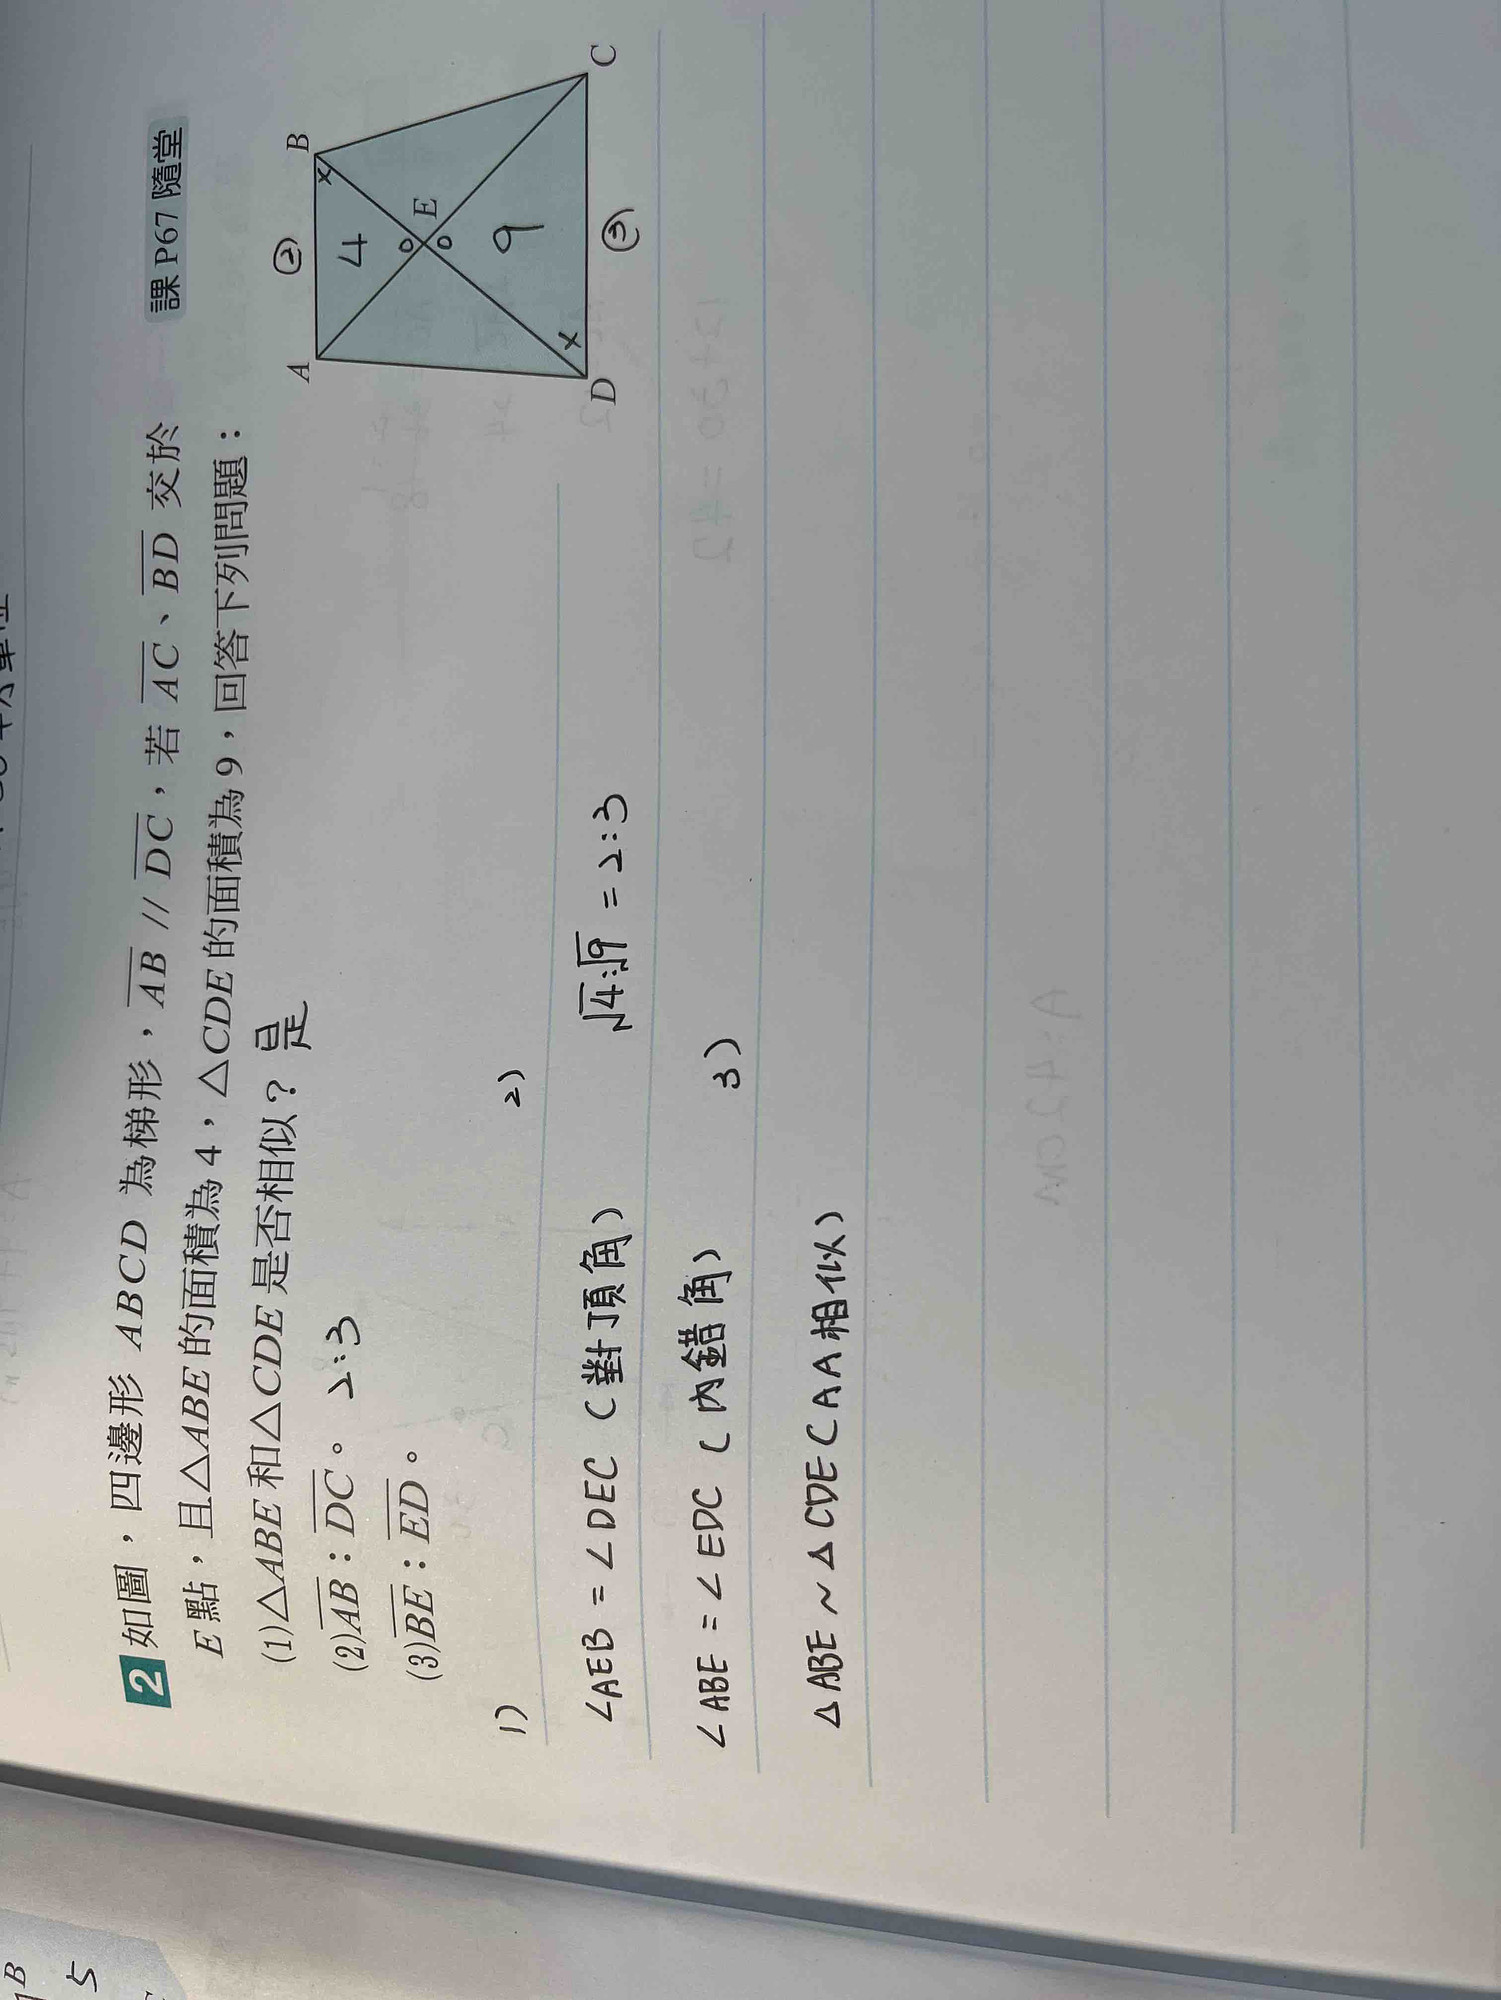 課 P67 隨堂
2 如圖，四邊形 ABCD 為梯形，AB // DC，若 AC、BD 交於
E 點，且△ABE 的面積為 4，△CDE 的面積為 9，回答下列問題：
(1)△ABE 和△CDE 是否相似？是
(2)AB：DC。 2:3
(3)BE：ED。
A
B
②
4
E
9
D
C
③
1)
∠AEB = ∠DEC (對頂角)
∠ABE = ∠EDC (內錯角)
△ABE ~ △CDE (AA相似)
2)
√4:√9 = 2:3
3)
B
5